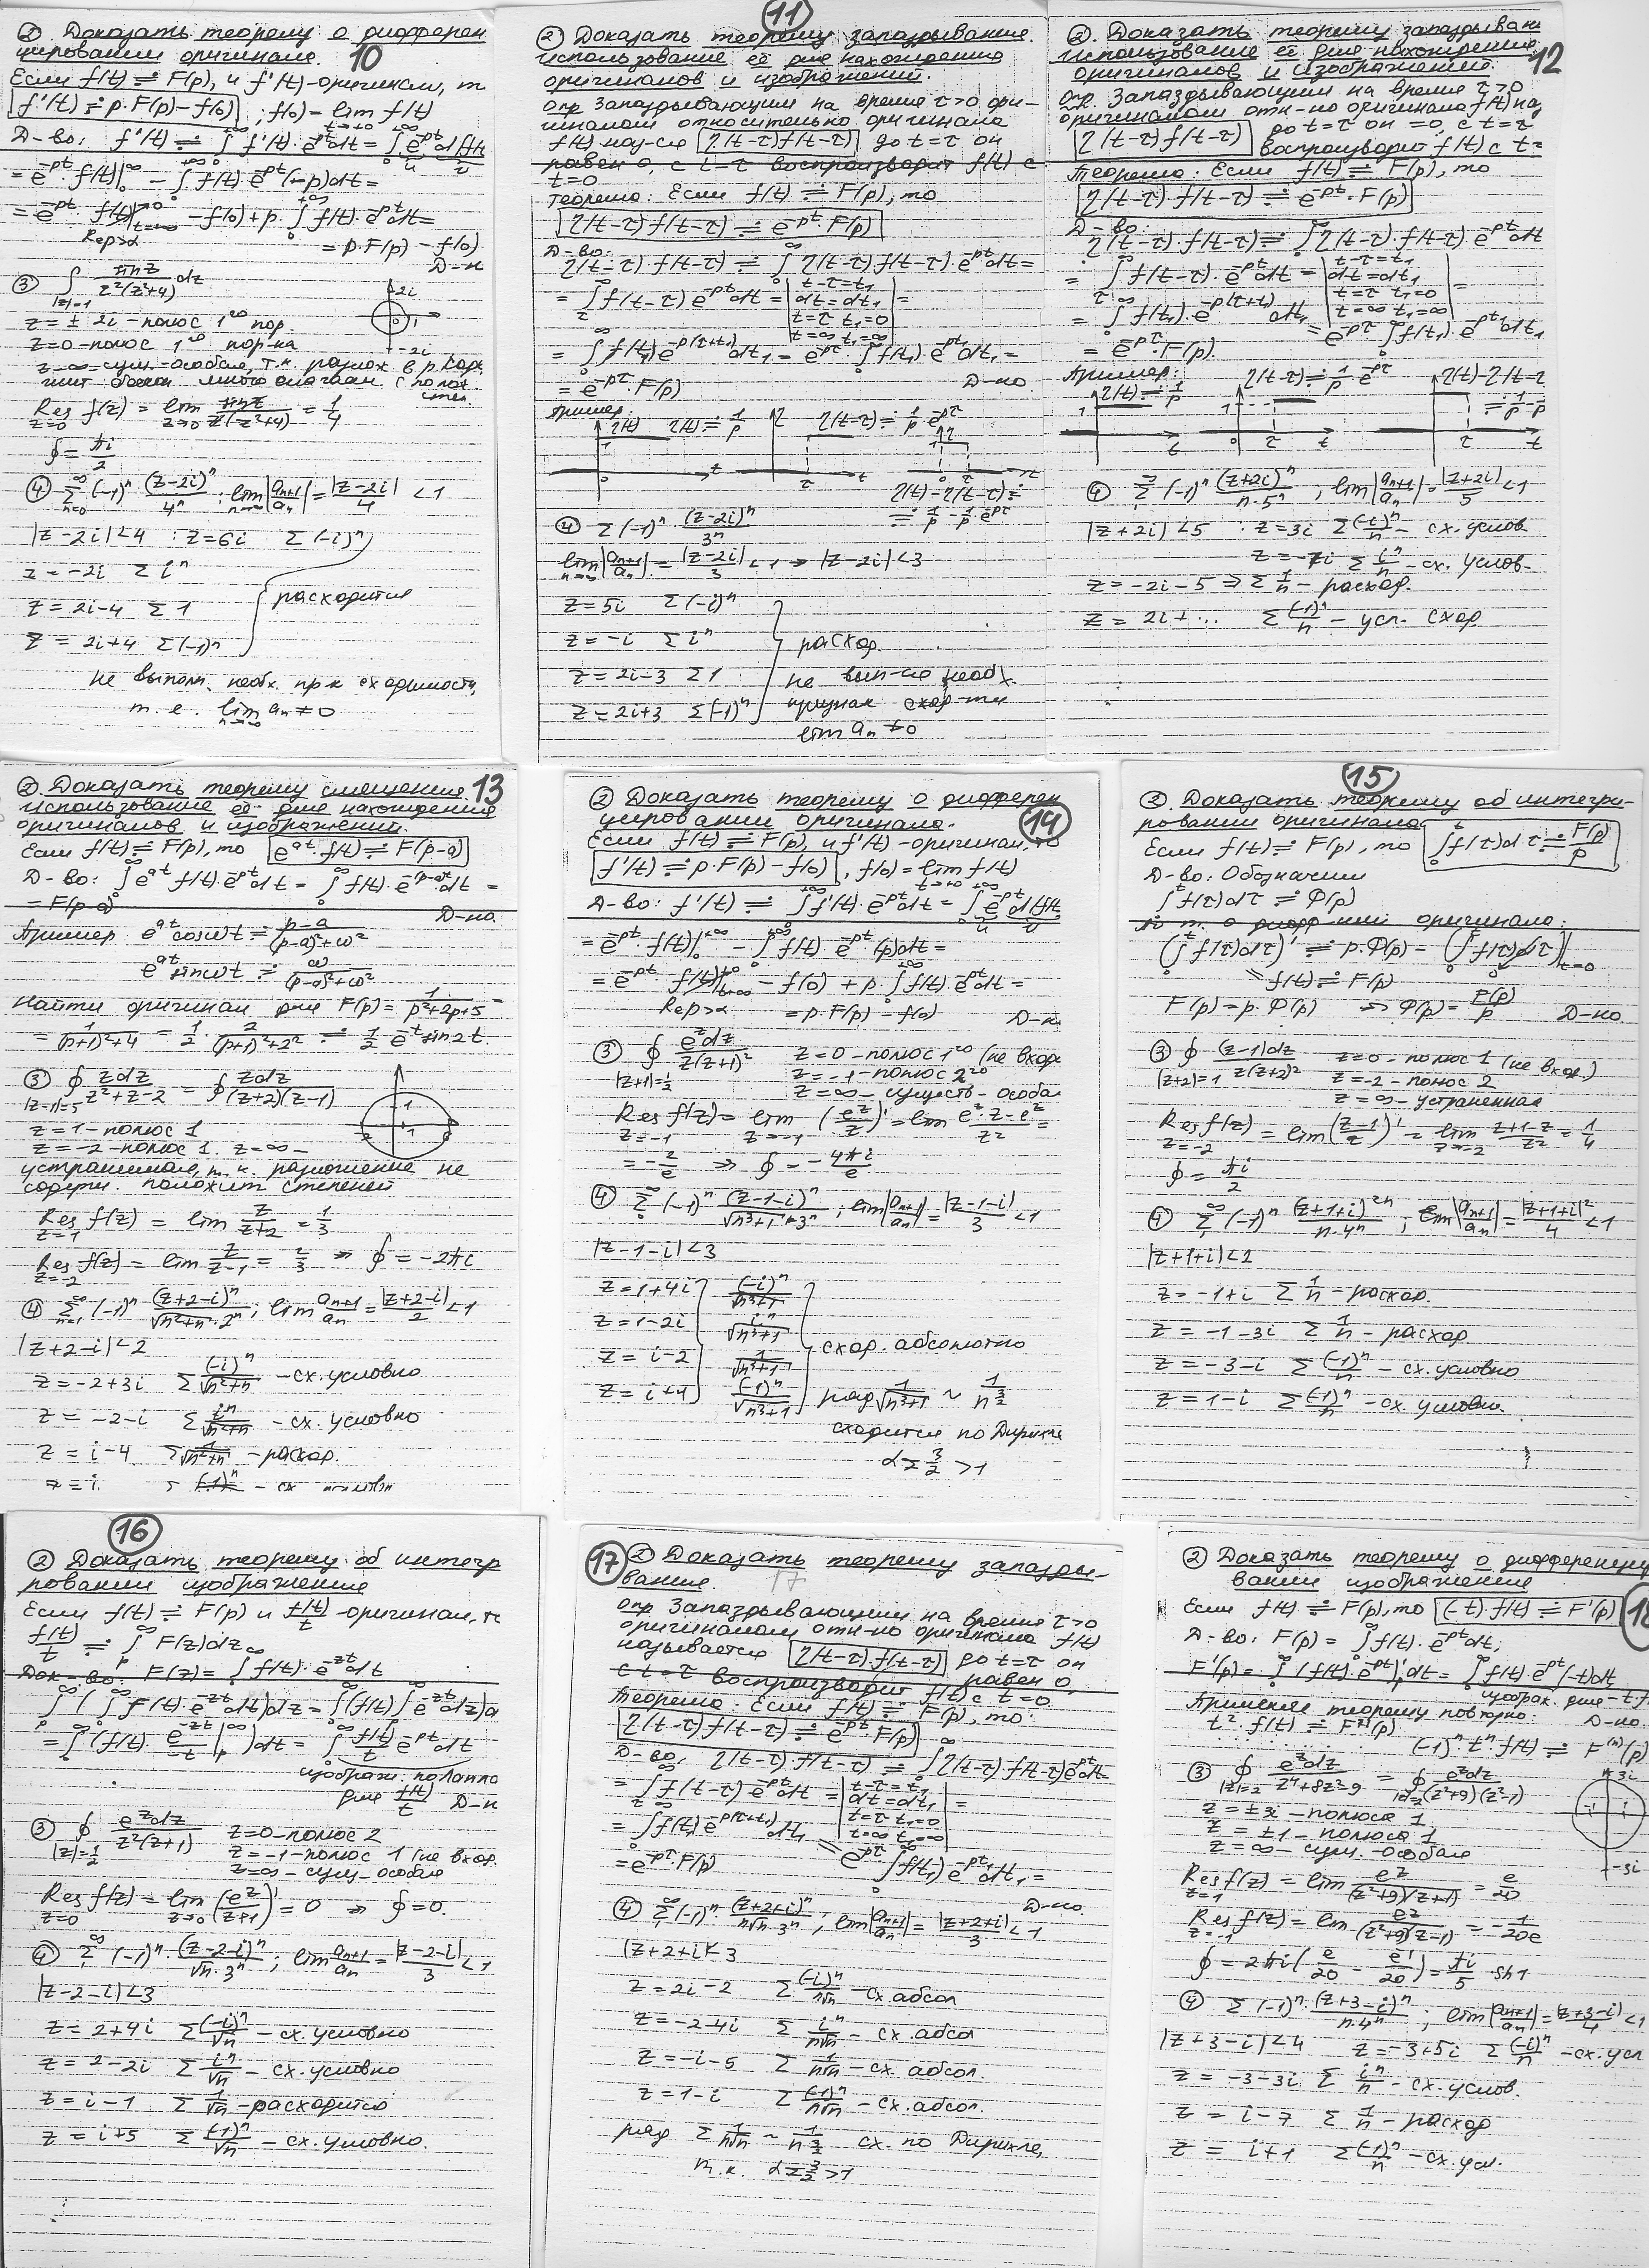 ② Доказать теорему о дифферен
цировании оригинала. 10
Если f(t) ≓ F(p), и f'(t)-оригинал, т
f'(t) ≓ p·F(p) – f(0) ; f(0) = lim f(t) t→+0
Д-во: f'(t) ≓ ∫₀^{+∞} f'(t)·e^{-pt}dt = ∫₀^{+∞} e^{-pt} d(f(t))
= e^{-pt} f(t)|₀^{+∞} – ∫₀^{+∞} f(t)·e^{-pt}(-p)dt =
= e^{-pt}·f(t)|_{t→∞} →0 – f(0) + p·∫₀^{+∞} f(t)·e^{-pt}dt =
Re p>α = p·F(p) – f(0)
Д-н
③ ∫_{|z|=1} sinz/(z²(z²+4)) dz 2i
z = ± 2i – полюс 1го пор. 0 1
z=0 – полюс 1го пор-ка -2i
z=∞ – сущ-особая, т.к. разлож в р
Res f(z) z=0 = lim z→0 sinz/(z(z²+4)) = 1/4
∮ = πi/2
④ Σ_{n=0}^∞ (-1)ⁿ (z-2i)ⁿ/4ⁿ ; lim n→∞ |a_{n+1}/a_n| = |z-2i|/4 < 1
|z-2i|<4 : z=6i Σ (-i)ⁿ
z = -2i Σ iⁿ
z = 2i-4 Σ 1 расходится
z = 2i+4 Σ(-1)ⁿ
не выполн. необх. пр-к сходимости,
т.е. lim n→∞ a_n ≠ 0
11
② Доказать теорему запаздывания.
Использование её для нахождения
оригиналов и изображений.
Опр Запаздывающим на время τ>0 ори-
гиналом относительно оригинала
f(t) наз-ся η(t-τ)f(t-τ) до t=τ он
равен 0, с t=τ воспроизводит f(t) с
t=0
Теорема: Если f(t) ≓ F(p), то
η(t-τ)f(t-τ) ≓ e^{-pτ}·F(p)
Д-во:
η(t-τ)·f(t-τ) ≓ ∫₀^∞ η(t-τ)·f(t-τ)·e^{-pt}dt =
= ∫_τ^∞ f(t-τ)e^{-pt}dt = |t-τ=t₁ dt=dt₁ t=τ t₁=0 t=∞ t₁=∞| =
= ∫₀^∞ f(t₁)e^{-p(τ+t₁)}dt₁ = e^{-pτ} ∫₀^∞ f(t₁)·e^{-pt₁}dt₁ =
= e^{-pτ}·F(p) Д-но
Пример:
η(t) η(t) ≓ 1/p η η(t-τ) ≓ 1/p·e^{-pτ} η
1 0 t τ t 1 0 τ t
η(t)-η(t-τ) ≓
≓ 1/p – 1/p·e^{-pτ}
④ Σ (-1)ⁿ·(z-2i)ⁿ/3ⁿ
lim n→∞ |a_{n+1}/a_n| = |z-2i|/3 < 1 ⇒ |z-2i|<3
z = 5i Σ(-i)ⁿ
z = -i Σ iⁿ расход.
z = 2i-3 Σ 1 не вып-ся необх.
z = 2i+3 Σ(-1)ⁿ признак сход-ти
lim a_n ≠ 0
②. Доказать теорему запаздыван
Использование её для нахождения
оригиналов и изображений. 12
Опр. Запаздывающим на время τ>0
оригиналом отн-но оригинала f(t) наз
η(t-τ)f(t-τ) до t=τ он =0, с t=τ
воспроизводит f(t) с t=
Теорема: Если f(t) ≓ F(p), то
η(t-τ)·f(t-τ) ≓ e^{-pτ}·F(p)
Д-во:
η(t-τ)·f(t-τ) ≓ ∫₀^∞ η(t-τ)·f(t-τ)·e^{-pt}dt
= ∫_τ^∞ f(t-τ)·e^{-pt}dt = |t-τ=t₁ dt=dt₁ t=τ t₁=0 t=∞ t₁=∞| =
= ∫₀^∞ f(t₁)·e^{-p(τ+t₁)}dt₁ = e^{-pτ}·∫₀^∞ f(t₁)·e^{-pt₁}dt₁
= e^{-pτ}·F(p).
Пример:
η(t) ≓ 1/p η(t-τ) ≓ 1/p·e^{-pτ} η(t)-η(t-τ
1 t 1 0 τ t τ t
④ Σ₁^∞ (-1)ⁿ (z+2i)ⁿ/(n·5ⁿ) ; lim|a_{n+1}/a_n| = |z+2i|/5 < 1
|z+2i|<5 : z=3i Σ (-i)ⁿ/n – сх. услов.
z = -7i Σ iⁿ/n – сх. услов-
z = -2i-5 ⇒ Σ 1/n – расход.
z = 2i+... Σ (-1)ⁿ/n – усл. сход.
② Доказать теорему смещения. 13
Использование её для нахождения
оригиналов и изображений.
Если f(t) ≓ F(p), то e^{at}·f(t) ≓ F(p-a)
Д-во: ∫₀^∞ e^{at} f(t)·e^{-pt}dt = ∫₀^∞ f(t)·e^{-(p-a)t}dt =
= F(p-a) Д-но.
Пример e^{at}cosωt ≓ (p-a)/((p-a)²+ω²)
e^{at}sinωt ≓ ω/((p-a)²+ω²)
Найти оригинал для F(p) = 1/(p²+2p+5) =
= 1/((p+1)²+4) = 1/2·2/((p+1)²+2²) ≓ 1/2 e^{-t}sin2t.
③ ∮_{|z-1|=5} zdz/(z²+z-2) = ∮ zdz/((z+2)(z-1))
z=1 – полюс 1
z=-2 – полюс 1. z=∞ –
устранимая, т.к. разложение не
содерж. положит степеней
Res f(z) z=1 = lim z/(z+2) = 1/3
Res f(z) z=-2 = lim z/(z-1) = 2/3 ⇒ ∮ = -2πi
④ Σ_{n=1}^∞ (-1)ⁿ (z+2-i)ⁿ/(√(n²+n)·2ⁿ) ; lim a_{n+1}/a_n = |z+2-i|/2 < 1
|z+2-i|<2
z = -2+3i Σ (-i)ⁿ/√(n²+n) – сх. условно
z = -2-i Σ iⁿ/√(n²+n) – сх. условно
z = i-4 Σ 1/√(n²+n) – расход.
z = i.
② Доказать теорему о дифферен
цировании оригинала. 14
Если f(t) ≓ F(p), и f'(t)-оригинал, то
f'(t) ≓ p·F(p) – f(0) , f(0) = lim f(t) t→+0
Д-во: f'(t) ≓ ∫₀^{+∞} f'(t)·e^{-pt}dt = ∫₀^{+∞} e^{-pt} d(f(t))
= e^{-pt}·f(t)|₀^{+∞} – ∫₀^{+∞} f(t)·e^{-pt}·(-p)dt =
= e^{-pt} f(t)|_{t→∞} →0 – f(0) + p·∫₀^{+∞} f(t)·e^{-pt}dt =
Re p>α = p·F(p) – f(0) Д-н.
③ ∮_{|z+1|=1/2} e^z dz/(z(z+1)²) z=0 – полюс 1го (не вход
z=-1 – полюс 2го
z=∞ – существ-особая
Res f(z) z=-1 = lim z→-1 (e^z/z)' = lim (e^z·z-e^z)/z² =
= -2/e ⇒ ∮ = -4πi/e
④ Σ₁^∞ (-1)ⁿ (z-1-i)ⁿ/(√(n³+1)·3ⁿ) ; lim|a_{n+1}/a_n| = |z-1-i|/3 < 1
|z-1-i|<3
z = 1+4i (-i)ⁿ/√(n³+1)
z = 1-2i iⁿ/√(n³+1)
z = i-2 1/√(n³+1) сход. абсолютно
z = i+4 (-1)ⁿ/√(n³+1) ряд 1/√(n³+1) ~ 1/n^{3/2}
сходится по Дирихле
α = 3/2 > 1
15
②. Доказать теорему об интегри-
ровании оригинала.
Если f(t) ≓ F(p), то ∫₀^t f(τ)dτ ≓ F(p)/p
Д-во: Обозначим
∫₀^t f(τ)dτ ≓ Φ(p)
По т. о дифф-нии оригинала:
(∫₀^t f(τ)dτ)' ≓ p·Φ(p) – (∫₀^t f(τ)dτ)|_{t=0}
= f(t) ≓ F(p)
F(p) = p·Φ(p) ⇒ Φ(p) = F(p)/p Д-но.
③ ∮_{|z+2|=1} (z-1)dz/(z(z+2)²) z=0 – полюс 1 (не вход.)
z=-2 – полюс 2
z=∞ – устранимая
Res f(z) z=-2 = lim((z-1)/z)' = lim z→-2 (z+1-z)/z² = 1/4
∮ = πi/2
④ Σ₁^∞ (-1)ⁿ (z+1+i)^{2n}/(n·4ⁿ) ; lim|a_{n+1}/a_n| = |z+1+i|²/4 < 1
|z+1+i|<2
z = -1+i Σ 1/n – расход.
z = -1-3i Σ 1/n – расход
z = -3-i Σ (-1)ⁿ/n – сх. условно
z = 1-i Σ (-1)ⁿ/n – сх. условно.
16
② Доказать теорему об интегр
ровании изображения
Если f(t) ≓ F(p) и f(t)/t -оригинал, т
f(t)/t ≓ ∫_p^∞ F(z)dz
Док-во: F(z) = ∫₀^∞ f(t)·e^{-zt}dt
∫_p^∞ (∫₀^∞ f(t)·e^{-zt}dt)dz = ∫₀^∞ (f(t) ∫_p^∞ e^{-zt}dz)d
= ∫₀^∞ (f(t)·e^{-zt}/-t |_p^∞)dt = ∫₀^∞ f(t)/t e^{-pt}dt
изображ. по Лапла
для f(t)/t Д-н
③ ∮_{|z|=1/2} e^z dz/(z²(z+1)) z=0 – полюс 2
z=-1 – полюс 1 (не вход.
z=∞ – сущ-особая
Res f(z) z=0 = lim z→0 (e^z/(z+1))' = 0 ⇒ ∮=0.
④ Σ₁^∞ (-1)ⁿ·(z-2-i)ⁿ/(√n·3ⁿ) ; lim a_{n+1}/a_n = |z-2-i|/3 < 1
|z-2-i|<3
z = 2+4i Σ (-i)ⁿ/√n – сх. условно
z = 2-2i Σ iⁿ/√n – сх. условно
z = i-1 Σ 1/√n – расходится
z = i+5 Σ (-1)ⁿ/√n – сх. условно.
17 ② Доказать теорему запазды-
вания. 17
Опр Запаздывающим на время τ>0
оригиналом отн-но оригинала f(t)
называется η(t-τ)·f(t-τ) до t=τ он
равен 0
с t=τ воспроизводит f(t) с t=0.
Теорема: Если f(t) ≓ F(p), то:
η(t-τ)f(t-τ) ≓ e^{-pτ}·F(p)
Д-во. η(t-τ)·f(t-τ) ≓ ∫₀^∞ η(t-τ)·f(t-τ)e^{-pt}dt =
= ∫_τ^∞ f(t-τ)e^{-pt}dt = |t-τ=t₁ dt=dt₁ t=τ t₁=0 t=∞ t₁=∞| =
= ∫₀^∞ f(t₁)e^{-p(τ+t₁)}dt₁ = e^{-pτ} ∫₀^∞ f(t₁)e^{-pt₁}dt₁ =
= e^{-pτ}·F(p)
Д-но.
④ Σ₁^∞ (-1)ⁿ·(z+2+i)ⁿ/(n√n·3ⁿ) ; lim|a_{n+1}/a_n| = |z+2+i|/3 < 1
|z+2+i|<3
z = 2i-2 Σ (-i)ⁿ/(n√n) – сх. абсол
z = -2-4i Σ iⁿ/(n√n) – сх. абсол
z = -i-5 Σ 1/(n√n) – сх. абсол.
z = 1-i Σ (-1)ⁿ/(n√n) – сх. абсол.
ряд Σ 1/(n√n) ~ 1/n^{3/2} сх. по Дирихле,
т.к. α = 3/2 > 1
② Доказать теорему о дифференци
вании изображения
18
Если f(t) ≓ F(p), то (-t)·f(t) ≓ F'(p)
Д-во: F(p) = ∫₀^∞ f(t)·e^{-pt}dt;
F'(p) = ∫₀^∞ (f(t)·e^{-pt})'dt = ∫₀^∞ f(t)·e^{-pt}(-t)dt
изображ. для -t f
Применяя теорему повторно: Д-но.
t²·f(t) ≓ F''(p)
(-1)ⁿ·tⁿ·f(t) ≓ F^{(n)}(p)
③ ∮_{|z|=2} e^z dz/(z⁴+8z²-9) = ∮_{|z|=2} e^z dz/((z²+9)(z²-1)) 3i
z = ±3i – полюса 1
z = ±1 – полюса 1
z = ∞ – сущ.-особая -3i
Res f(z) z=1 = lim e^z/((z²+9)(z+1)) = e/20
Res f(z) z=-1 = lim e^z/((z²+9)(z-1)) = -1/20e
∮ = 2πi(e/20 – e^{-1}/20) = πi/5·sh1
④ Σ (-1)ⁿ·(z+3-i)ⁿ/(n·4ⁿ) ; lim|a_{n+1}/a_n| = |z+3-i|/4 < 1
|z+3-i|<4 z = -3+5i Σ (-i)ⁿ/n – сх. усл
z = -3-3i Σ iⁿ/n – сх. услов.
z = i-7 Σ 1/n – расход
z = i+1 Σ (-1)ⁿ/n – сх. усл.